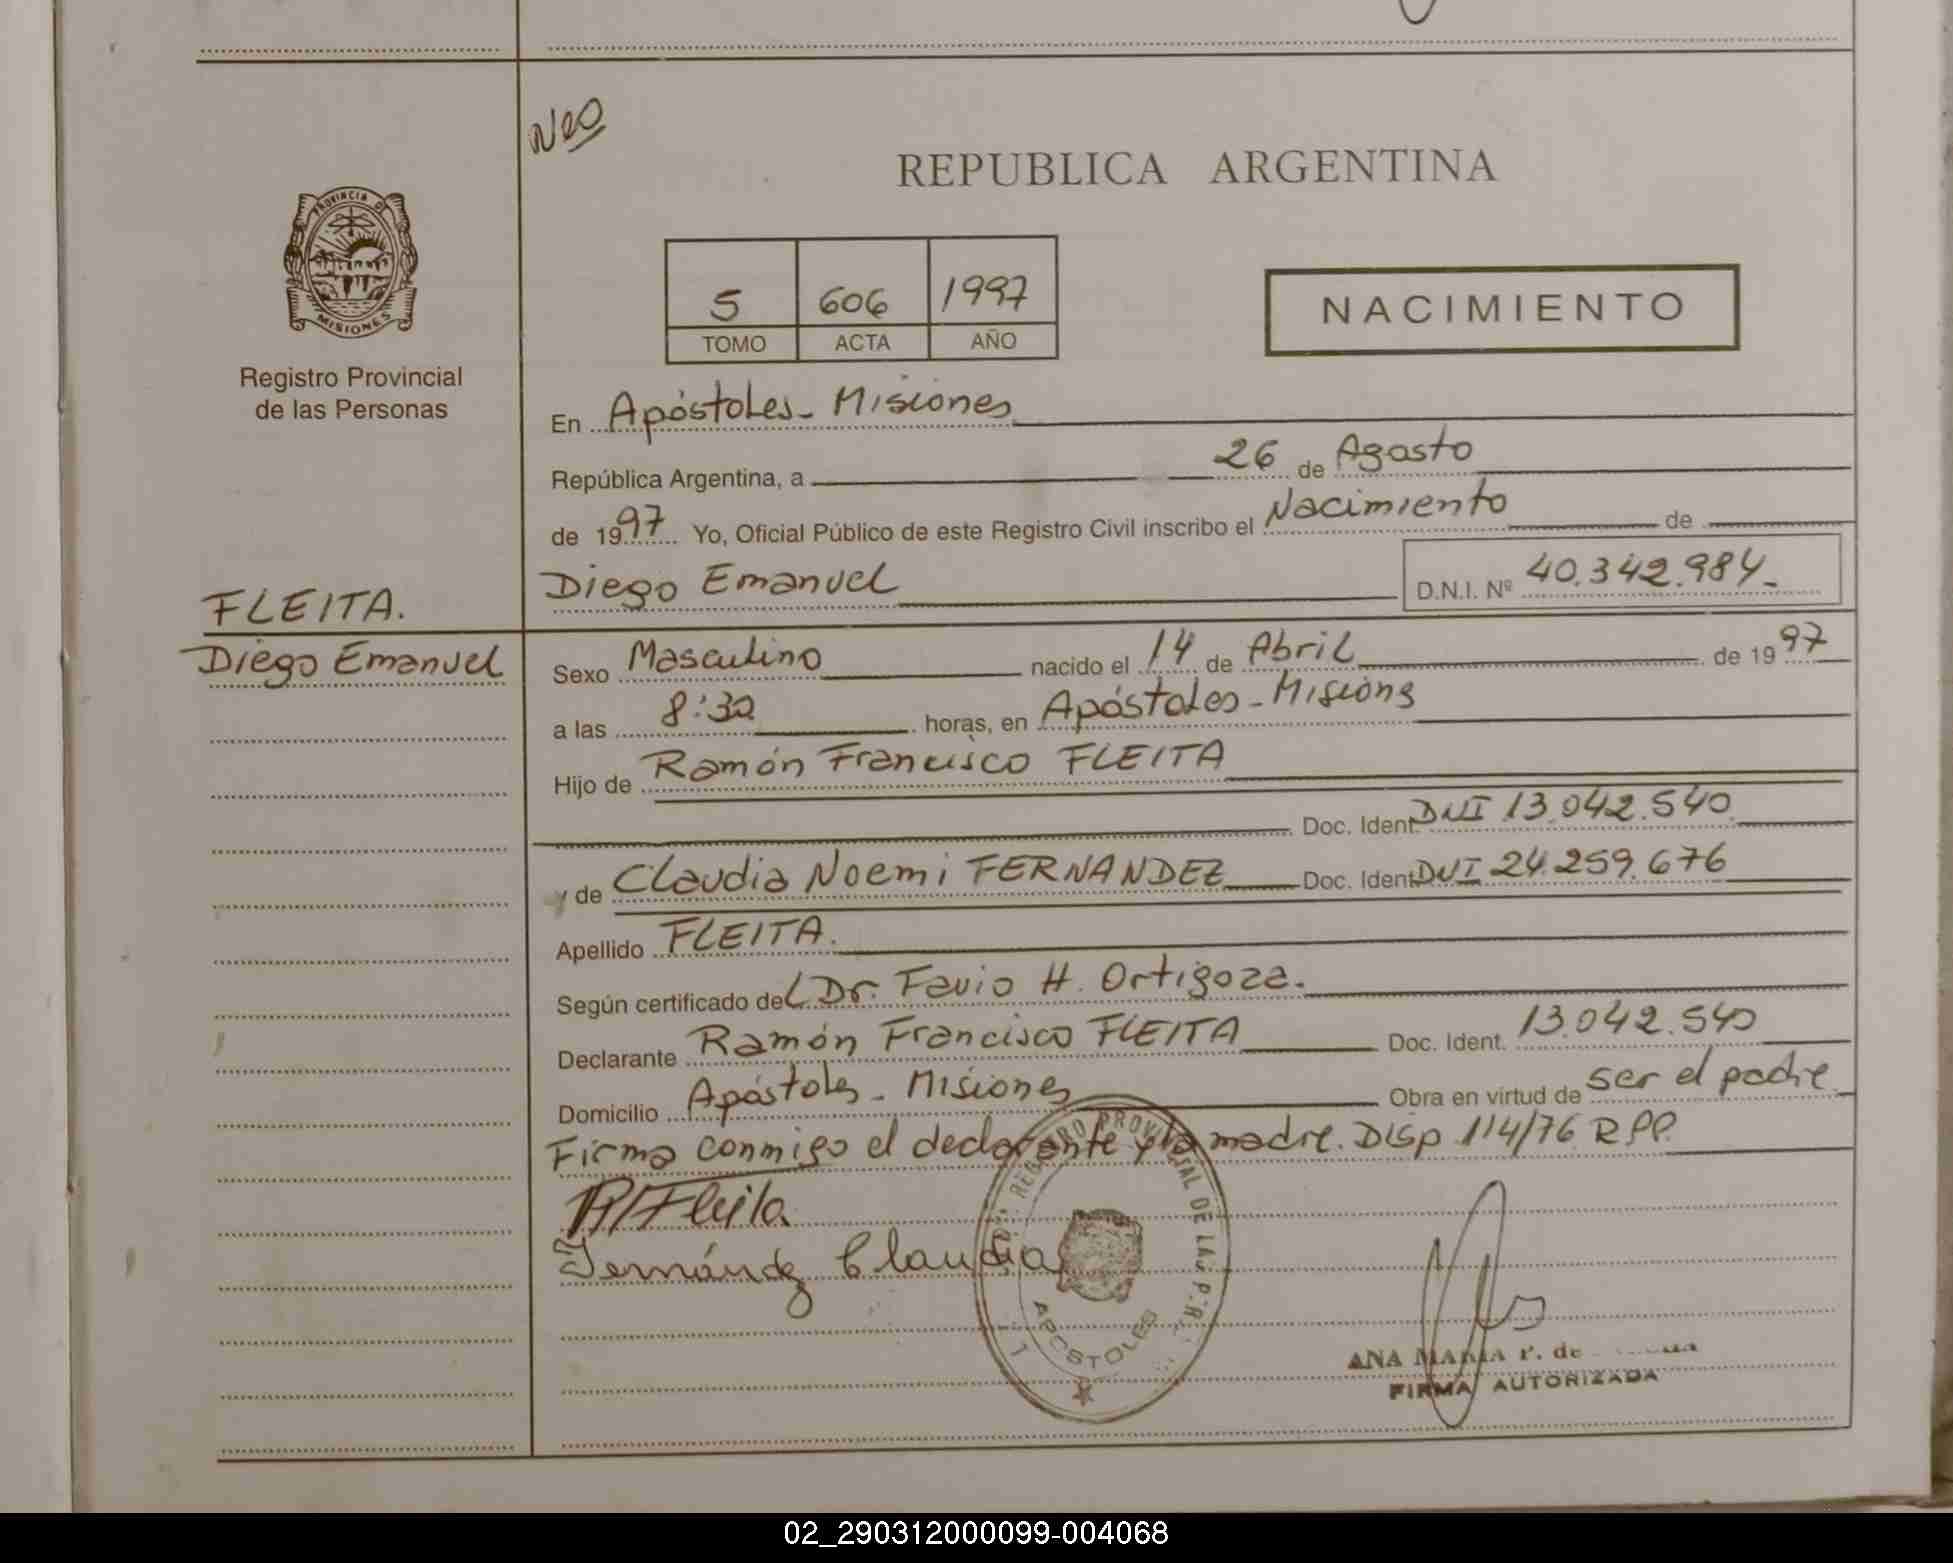 Neo
REPUBLICA ARGENTINA
PROVINCIA D
MISIONES
Registro Provincial
de las Personas
5 606 1997
TOMO ACTA AÑO
NACIMIENTO
En Apóstoles - Misiones
República Argentina, a 26 de Agosto
de 1997 Yo, Oficial Público de este Registro Civil inscribo el Nacimiento de
Diego Emanuel D.N.I. Nº 40.342.984.-
FLEITA.
Diego Emanuel
Sexo Masculino nacido el 14 de Abril de 1997
a las 8:30 horas, en Apóstoles - Misions
Hijo de Ramón Francisco FLEITA
Doc. Ident. DNI 13.042.540
y de Claudia Noemi FERNANDEZ Doc. Ident. DNI 24.259.676
Apellido FLEITA.
Según certificado de Dr. Favio H. Ortigoza.
Declarante Ramón Francisco FLEITA Doc. Ident. 13.042.540
Domicilio Apóstoles - Misiones Obra en virtud de ser el padre.
Firma conmigo el declarante y la madre. Disp 114/76 R.P.P.
R/Fleita
Fernández Claudia
REGISTRO PROVINCIAL DE LAS P.
APOSTOLES
ANA MARIA P. de
FIRMA AUTORIZADA
02_290312000099-004068